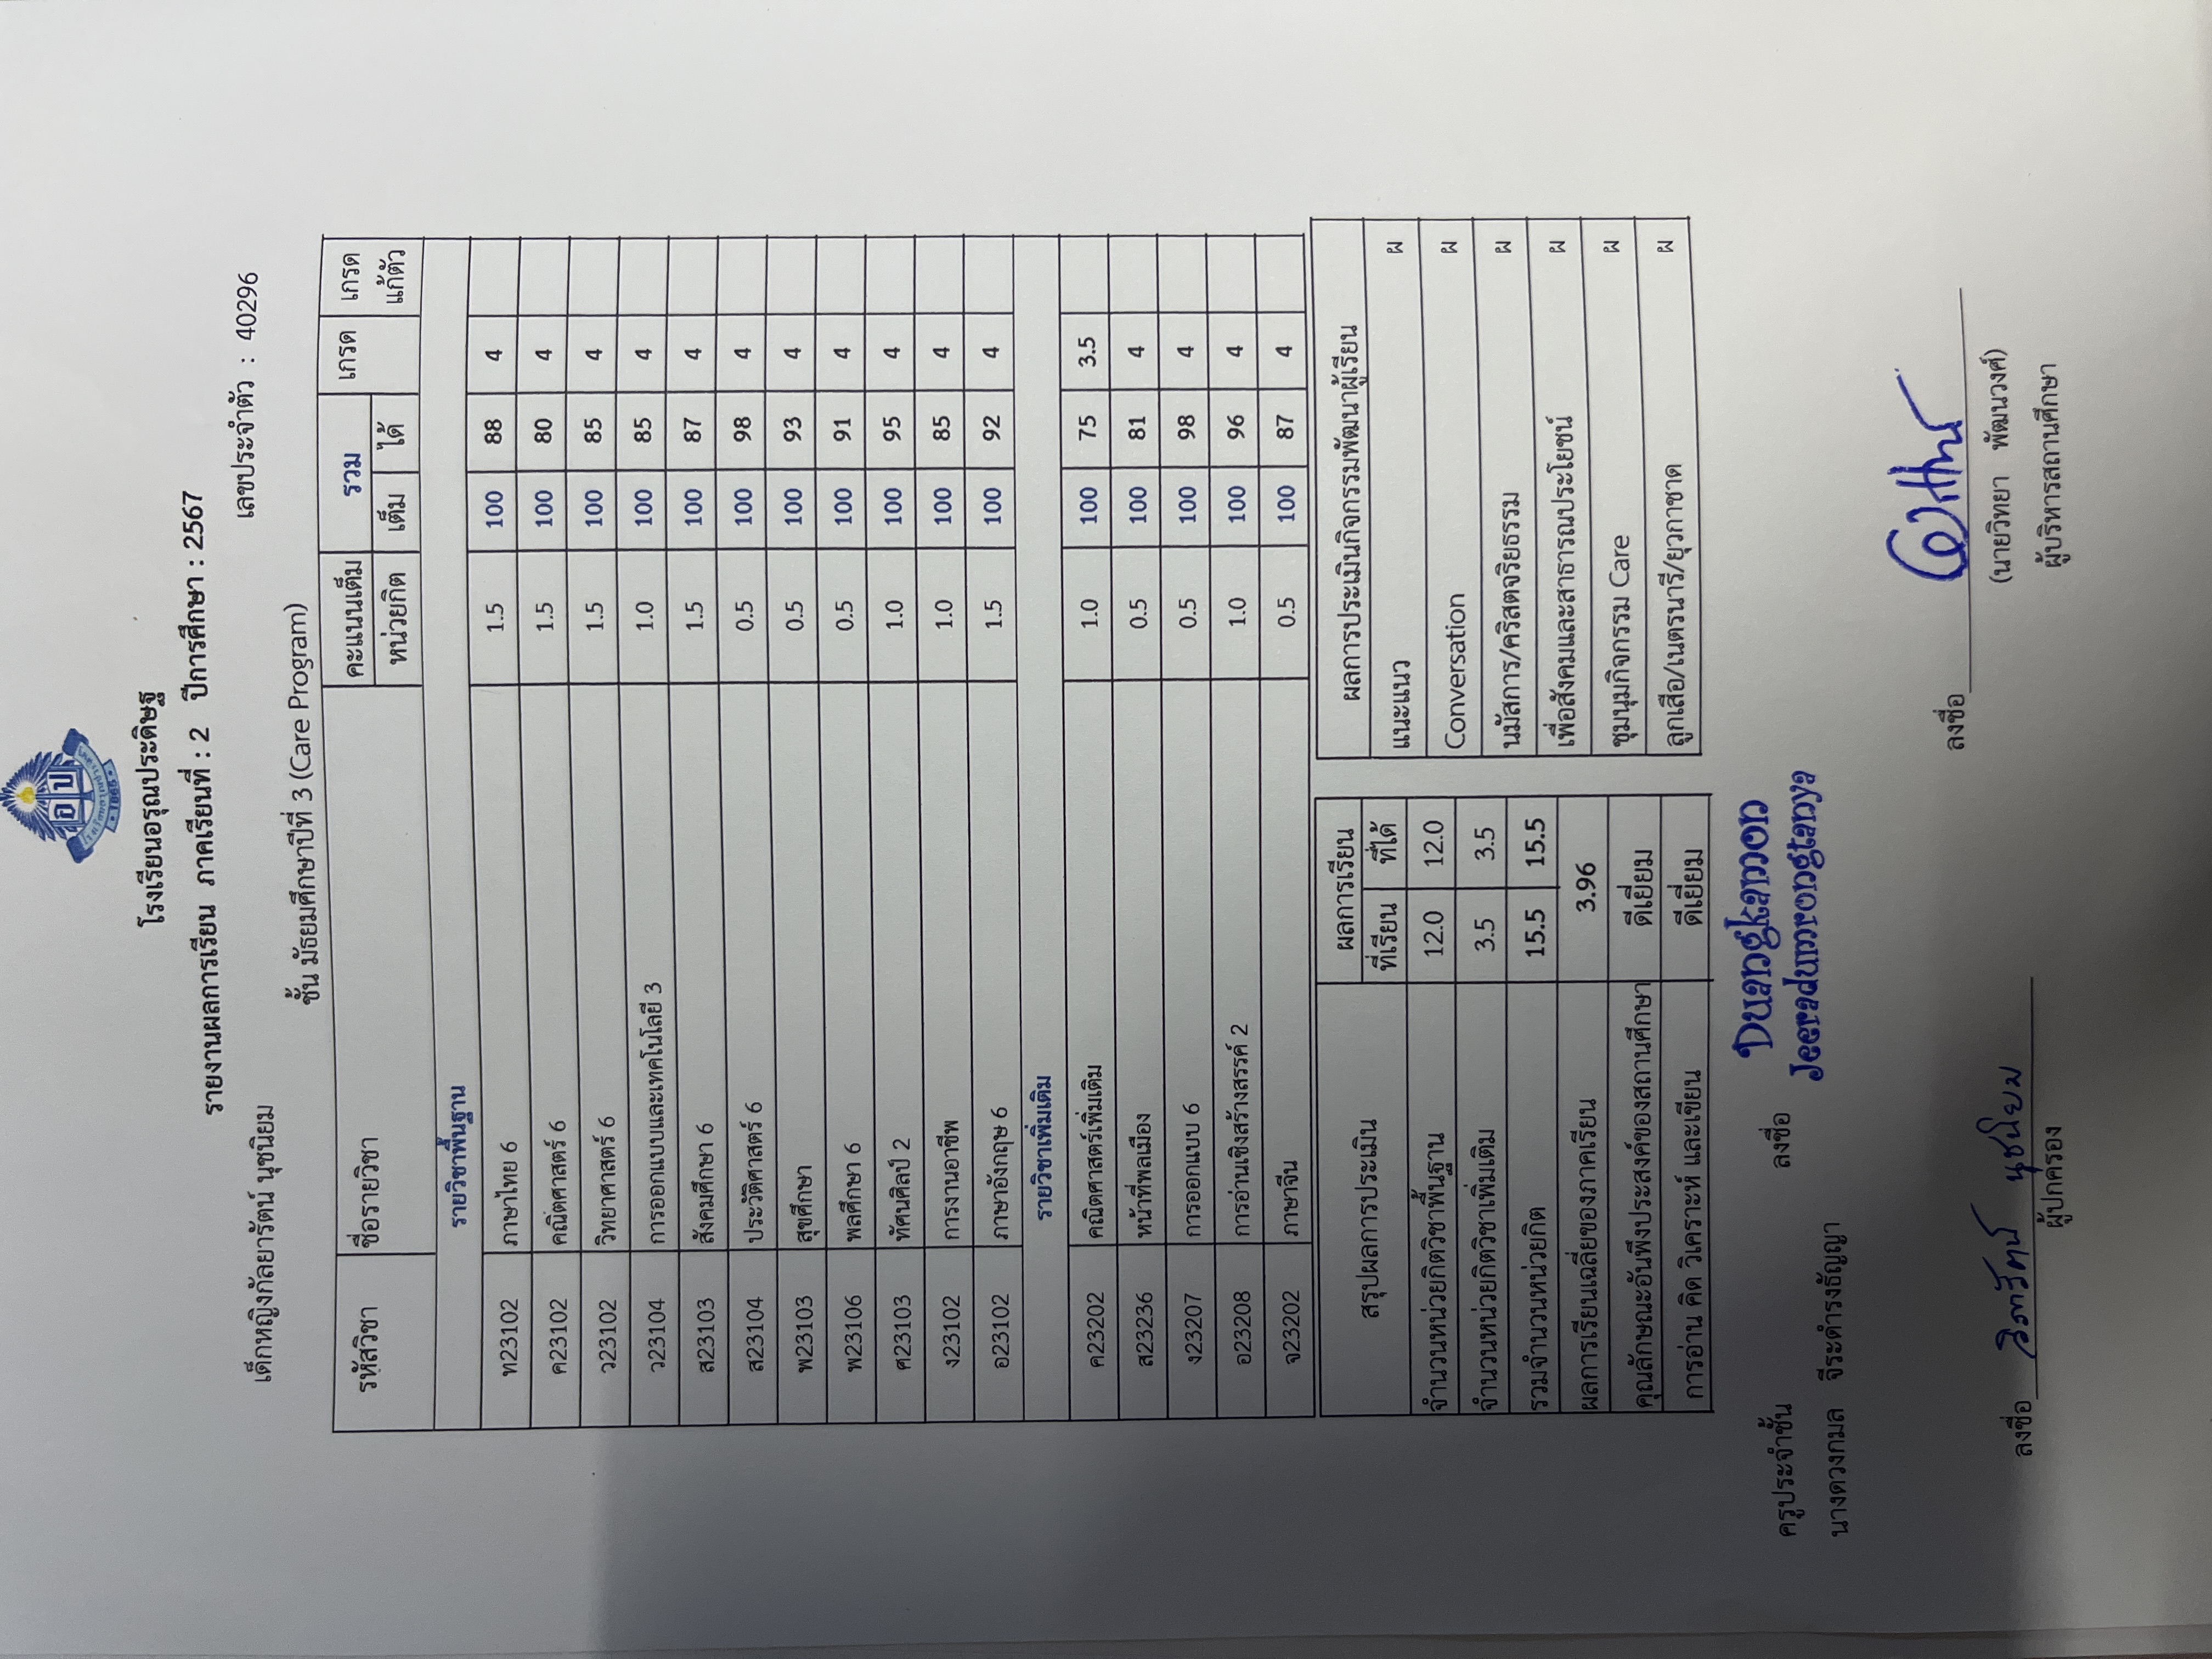 อ ป
1865
โรงเรียนอรุณประดิษฐ
รายงานผลการเรียน ภาคเรียนที่ : 2 ปีการศึกษา : 2567
เด็กหญิงกัลยารัตน์ นุชนิยม เลขประจำตัว : 40296
ชั้น มัธยมศึกษาปีที่ 3 (Care Program)
รหัสวิชา ชื่อรายวิชา คะแนนเต็ม รวม เกรด เกรด
หน่วยกิต เต็ม ได้ แก้ตัว
รายวิชาพื้นฐาน
ท23102 ภาษาไทย 6 1.5 100 88 4
ค23102 คณิตศาสตร์ 6 1.5 100 80 4
ว23102 วิทยาศาสตร์ 6 1.5 100 85 4
ว23104 การออกแบบและเทคโนโลยี 3 1.0 100 85 4
ส23103 สังคมศึกษา 6 1.5 100 87 4
ส23104 ประวัติศาสตร์ 6 0.5 100 98 4
พ23103 สุขศึกษา 0.5 100 93 4
พ23106 พลศึกษา 6 0.5 100 91 4
ศ23103 ทัศนศิลป์ 2 1.0 100 95 4
ง23102 การงานอาชีพ 1.0 100 85 4
อ23102 ภาษาอังกฤษ 6 1.5 100 92 4
รายวิชาเพิ่มเติม
ค23202 คณิตศาสตร์เพิ่มเติม 1.0 100 75 3.5
ส23236 หน้าที่พลเมือง 0.5 100 81 4
ง23207 การออกแบบ 6 0.5 100 98 4
อ23208 การอ่านเชิงสร้างสรรค์ 2 1.0 100 96 4
จ23202 ภาษาจีน 0.5 100 87 4
สรุปผลการประเมิน ผลการเรียน
ที่เรียน ที่ได้
จำนวนหน่วยกิตวิชาพื้นฐาน 12.0 12.0
จำนวนหน่วยกิตวิชาเพิ่มเติม 3.5 3.5
รวมจำนวนหน่วยกิต 15.5 15.5
ผลการเรียนเฉลี่ยของภาคเรียน 3.96
คุณลักษณะอันพึงประสงค์ของสถานศึกษา ดีเยี่ยม
การอ่าน คิด วิเคราะห์ และเขียน ดีเยี่ยม
ผลการประเมินกิจกรรมพัฒนาผู้เรียน
แนะแนว ผ
Conversation ผ
นมัสการ/คริสตจริยธรรม ผ
เพื่อสังคมและสาธารณประโยชน์ ผ
ชุมนุมกิจกรรม Care ผ
ลูกเสือ/เนตรนารี/ยุวกาชาด ผ
ครูประจำชั้น ลงชื่อ Duangkamon
นางดวงกมล จีระดำรงธัญญา Jeeradumrongtanya
ลงชื่อ
(นายวิทยา พัฒนวงศ์)
ผู้บริหารสถานศึกษา
ลงชื่อ นุชนิยม
ผู้ปกครอง